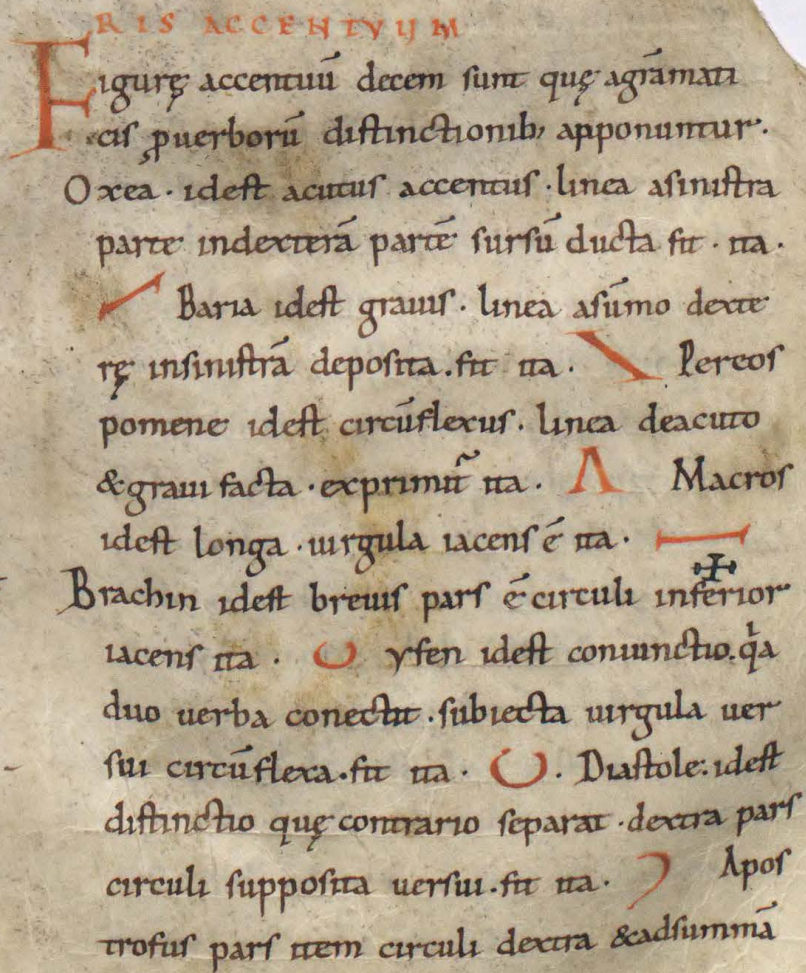 RIS ACCENTVUM
Figurę accentuū decem sunt quę agrāmati
cis ꝓuerborū distinctionib; apponuntur.
Oxea · idest acutus accentus · linea asinistra
parte indexterā partē sursū ducta fit · ita ·
/ Baria idest grauis · linea asūmo dexte
rę insinistrā deposita . fit ita · \ Pereos
pomene idest circūflexus . linea deacuto
& graui facta · exprimit̄ ita · Λ Macros
idest longa · uirgula iacens ē ita · —
Brachin idest breuis pars ē circuli inferior
iacens ita · ◡ yfen idest coniunctio . qͥa
duo uerba conectit · subiecta uirgula uer
sui circūflexa . fit ita · ◡ . Diastole : idest
distinctio quę contrario separat · dextra pars
circuli supposita uersui . fit ita · ) Apos
trofus pars item circuli dextra & adsummā